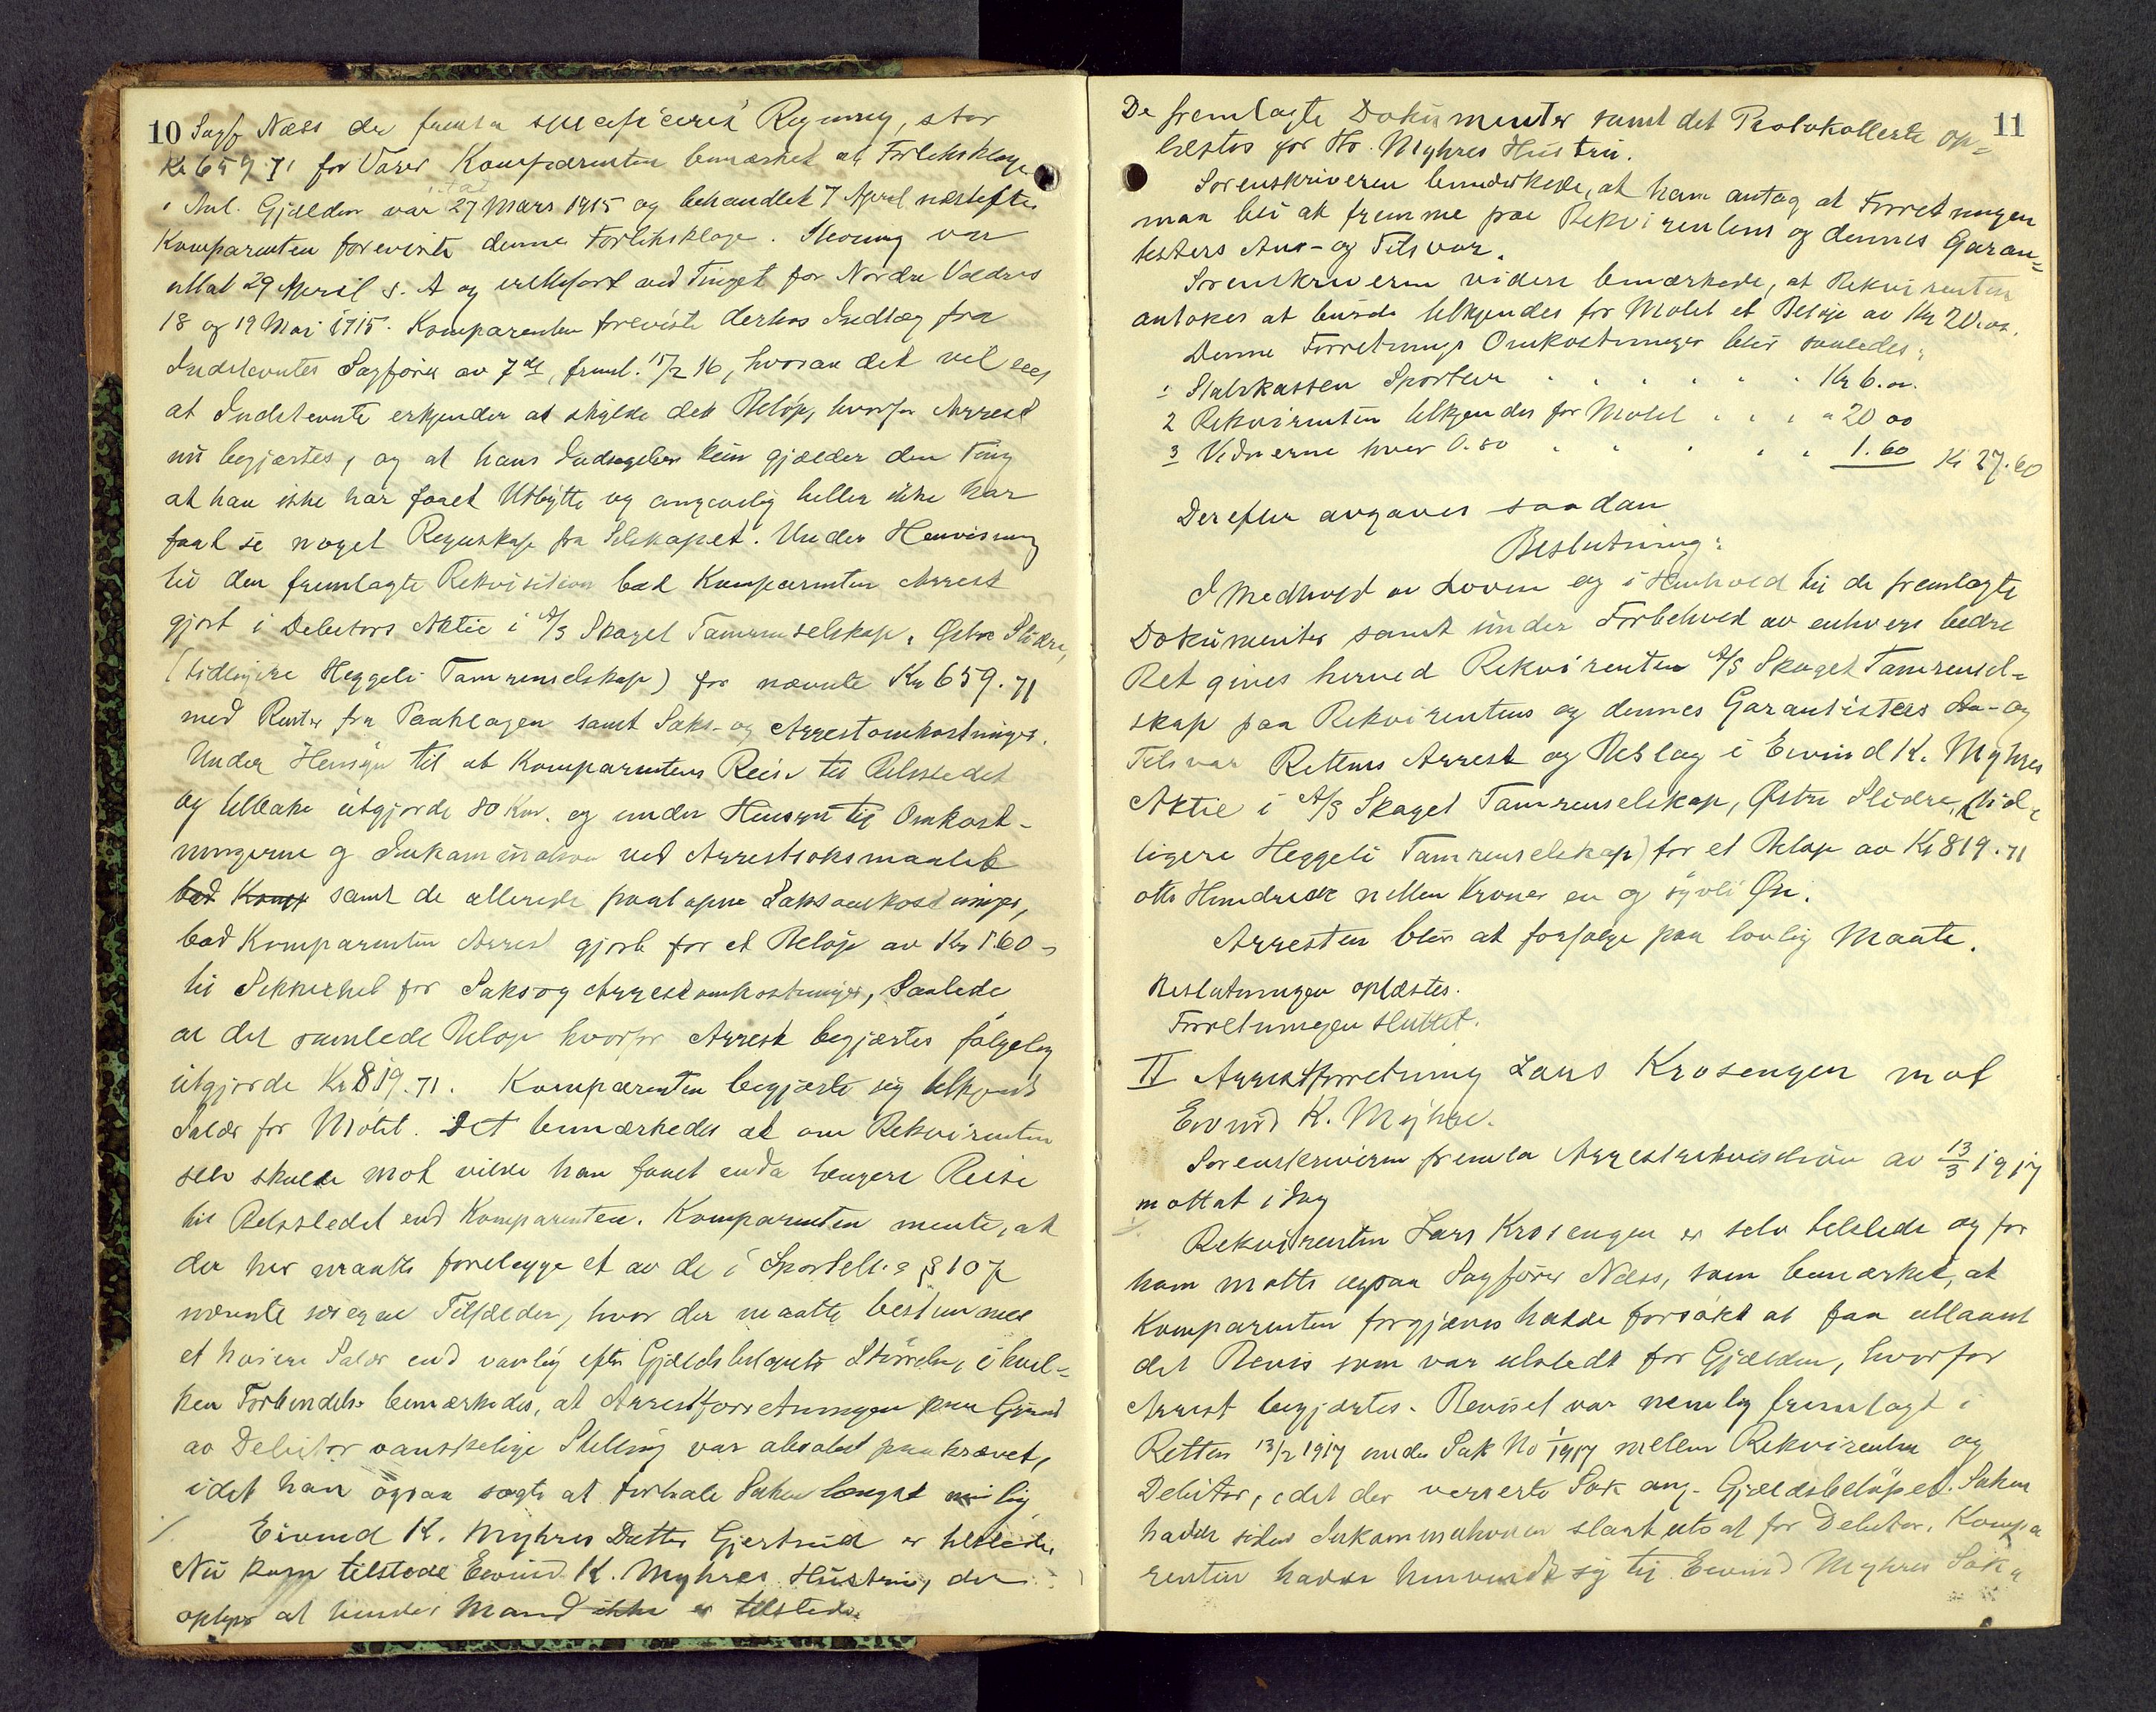 10
Sagf. Næss der fremla specificeret Regning, stor
Kr 659.71 for Varer Komparenten bemærket at Forliksklage
i Anl. Gjælden var uttat 27 Mars 1915 og behandlet 7 April næstefter
Komparenten foreviste denne Forliksklage. Stevning var
uttat 29 April s. A og irettefört ved Tinget for Nordre Valdres
18 og 19 Mai 1915. Komparenten foreviste derhos Indlæg fra
Indstevntes Sagförer av 7de, freml. 15/2 16, hvorav det vil sees
at Indstevnte erkjender at skylde det Belöp, hvorfor Arrest
nu begjærtes, og at hans Indsigelser kun gjælder den Ting
at han ikke har faaet Utbytte og angivelig heller ikke har
faat se noget Regnskap fra Selskapet. Under Henvisning
til den fremlagte Rekvisition bad Komparenten Arrest
gjort i Debitors Aktie i A/S Skaget Tamrenselskap, Östre Slidre,
(tidligere Heggeli Tamrenselskap) for nævnte Kr 659.71
med Renter fra Paaklagen samt Saks- og Arrestomkostninger.
Under Hensyn til at Komparentens Reise til Aastedet
og tilbake utgjorde 80 Km. og under Hensyn til Omkost-
ningerne og Inkamination ved Arrestsöksmaalet
bad Komp samt de allerede paalöpne Saksomkostninger,
bad Komparenten Arrest gjort for et Belöp av Kr 160 -
til Sikkerhet for Saks og Arrestomkostninger, Saaledes
at det samlede Belöp hvorfor Arrest begjærtes fölgelig
utgjorde Kr 819.71. Komparenten begjærte sig tilkjendt
Salær for Mötet. Det bemærkedes at om Rekvirenten
selv skulde möt vilde han faaet enda længere Reise
til Aastedet end Komparenten. Komparenten mente, at
der her maatte foreligge et av de i Sportell. § 107
nævnte særegne Tilfælder, hvor der maatte bestemmes
et höiere Salær end vanlig efter Gjældsbelöpets Störrelse, i hvil-
ken Forbindelse bemærkedes, at Arrestforretningen paa Grund
av Debitor vanskelige Stilling var absolut paakrævet,
idet han ogsaa sögte at forhale Saken længst mulig
Eivind K. Myhres Datter Gjertrud er tilstede
Nu kom tilstede Eivind K. Myhres Hustru, der
oplyser at hendes Mand ikke er tilstede.
11
De fremlagte Dokumenter samt det Protokollerte op-
læstes for Hr. Myhres Hustru.
Sorenskriveren bemærkede, at han antog at Forretningen
maa bli at fremme paa Rekvirentens og dennes Garan-
tisters An- og Tilsvar.
Sorenskriveren videre bemærkede, at Rekvirenten
antokes at burde tilkjendes for Mötet et Belöp av Kr 20.00.
Denne Forretnings Omkostninger blir saaledes:
1 Statskassen Sportler . . . . . . Kr 6.00
2 Rekvirenten tilkjendes for Mötet . . . " 20 00
3 Vidnerne hver 0.80 . . . . . 1.60 Kr 27.60
Derefter avgaves saadan
Beslutning:
I Medhold av Loven og i Henhold til de fremlagte
Dokumenter samt under Forbehold av enhvers bedre
Ret gives herved Rekvirenten A/S Skaget Tamrensel-
skap paa Rekvirentens og dennes Garantisters An- og
Tilsvar Rettens Arrest og Beslag i Eivind K. Myhres
Aktie i A/S Skaget Tamrenselskap, Östre Slidre, (tid-
ligere Heggeli Tamrenselskap) for et Belöp av Kr 819.71
otte Hundrede nitten Kroner en og sytti Öre.
Arresten blir at forfölge paa lovlig Maate.
Beslutningen oplæstes.
Forretningen sluttet.
II Arrestforretning Lars Krosengen mot
Eivind K. Myhre.
Sorenskriveren fremla Arrestrekvisition av 13/3 1917
mottat i Dag
Rekvirenten Lars Krosengen er selv tilstede og for
ham mötte ogsaa Sagförer Næss, som bemærket, at
Komparenten forgjæves hadde forsökt at faa utlaant
det Bevis som var utstedt for Gjælden, hvorfor
Arrest begjærtes. Beviset var nemlig fremlagt i
Retten 13/2 1917 under Sak No 1/1917 mellem Rekvirenten og
Debitor, idet der verserte Sak ang. Gjældsbelöpet. Saken
hadde siden Inkaminationen staat utsat for Debitor. Kompa
renten hadde henvendt sig til Eivind Myhres Sak